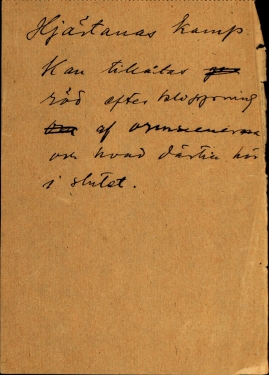 Hjärtanas kamp.
Kan tillåtas
röd efter kloppning
af ormscenerna
och hvad därtill hör
i slutet.